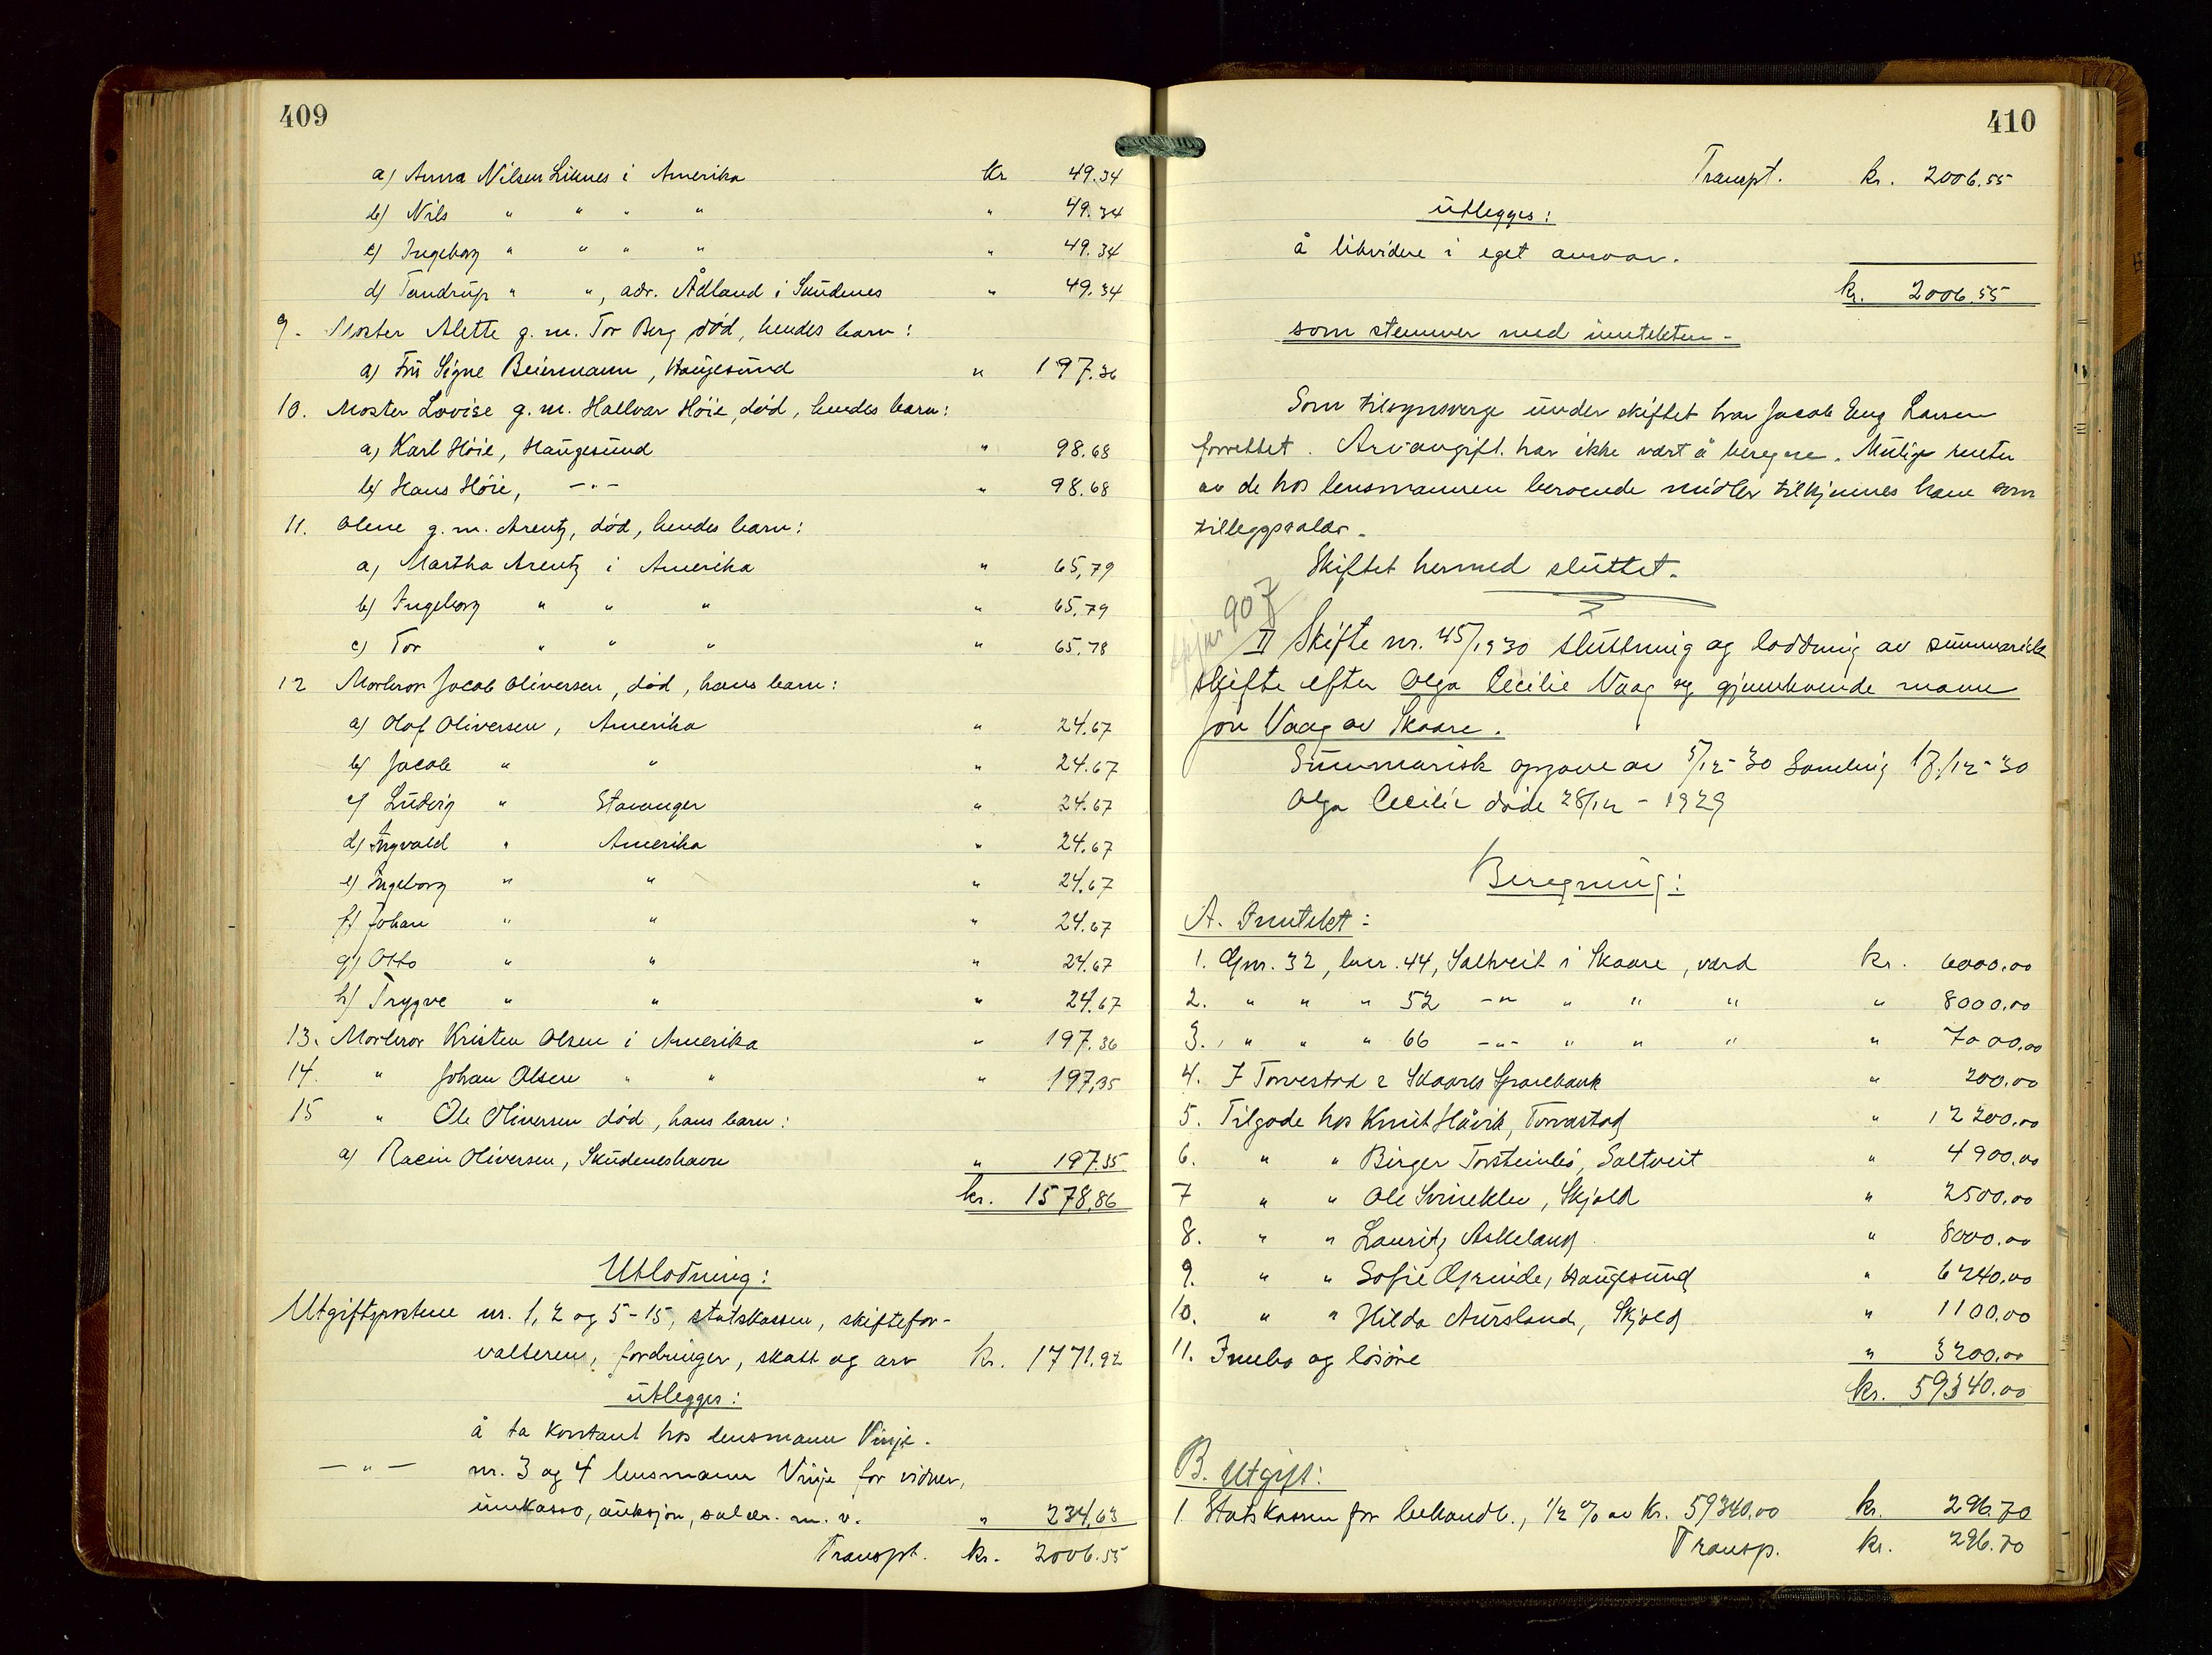 409
a) Anna Nilsen Liknes i Amerika kr 49.34
b) Nils " " " " " 49.34
c) Ingeborg " " " " " 49.34
d) Tandrup " ", adr. Ådland i Skudenes " 49.34
9. Moster Alette g. m. Tor Berg død, hendes barn:
a) Fru Signe Beiermann, Haugesund " 197.36
10. Moster Lovise g. m. Hallvar Höie, død, hendes barn:
a) Karl Höie, Haugesund " 98.68
b) Hans Höie, -"- " 98.68
11. Olene g. m. Arentz, død, hendes barn:
a) Martha Arentz i Amerika " 65,79
b) Ingeborg " " " " 65.79
c) Tor " " " " 65.78
12 Morbror Jacob Oliversen, død, hans barn:
a) Olaf Oliversen, Amerika " 24.67
b) Jacob " " " 24.67
c) Ludvig " Stavanger " 24.67
d) Ingvald " Amerika " 24.67
e) Ingeborg " " " 24.67
f) Johan " " " 24.67
g) Otto " " " 24.67
h) Trygve " " " 24.67
13. Morbror Kristen Olsen i Amerika " 197.36
14. " Johan Olsen " " " 197,35
15 " Ole Oliversen død, hans barn:
a) Oliversen, Skudeneshavn " 197.35
kr. 1578,86
Utlodning:
Utgiftspostene nr. 1, 2 og 5-15, statskassen, skiftefor-
valteren, fordringer, skatt og arv kr. 1771.92
utlegges:
å ta kontant hos lensmann Vinje.
- " - nr. 3 og 4 lensmann Vinje for vidner,
innkasso, auksjon, salær. m. v. " 234,63
Transpt. kr. 2006.55
410
Transpt. kr. 2006.55
utlegges:
å likvidere i eget ansvar.
kr. 2006.55
som stemmer med inntekten -
Som tilsynsverge under skiftet har Jacob Eng Larsen
forrettet. Arvavgift. har ikke vært å beregne. Mulige renter
av de hos lensmannen beroende midler tilkjennes ham som
tilleggsalær.
Skiftet hermed sluttet.
907
II Skifte nr. 45/1930 slutning og lodding av summarisk
skifte efter Olga Cecilie Vaag og gjenlevende mann
Jon Vaag av Skaare.
Summarisk opgave av 5/12-30 Samling 17/12-30
Olga Cecilie døde 28/12 - 1929
Beregning:
A. Inntekt:
1. Gnr. 32, bnr. 44, Saltveit i Skaare, verd kr. 6000.00
2. " " " 52 -"- " " " " 8000.00
3. " " " 66 -"- " " " " 7000.00
4. I Torvestad & Skaares Sparebank " 200.00
5. Tilgode hos Knut Håvik, Torvastad " 12200.00
6. " " Birger Torsteinbö, Saltveit " 4900.00
7 " " Ole Svineklev, Skjold " 2500.00
8. " " Lauritz Askeland " 8000.00
9. " " Sofie Grinde, Haugesund " 6240.00
10. " " Hilda Aursland, Skjold " 1100.00
11. Innbo og lösöre " 3200.00
kr. 59340.00
B. Utgift:
1 Statskassen for behandl., 1/2 % av kr. 59340.00 kr. 296.70
Transp. kr. 296.70